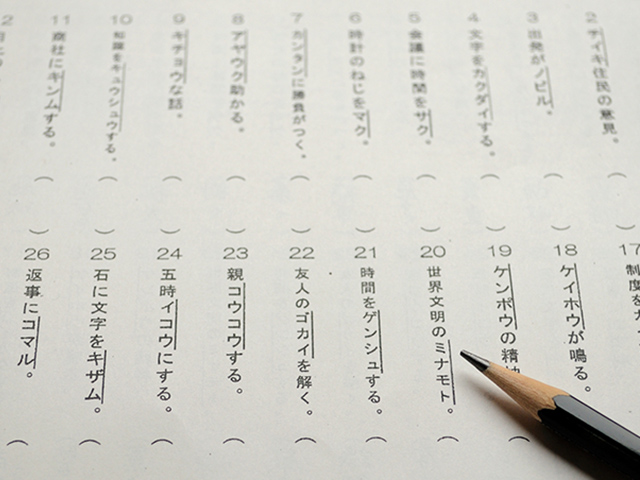 2 チイキ住民の意見。
3 出発がノビル。
4 文字をカクダイする。
5 会議に時間をサク。
6 時計のねじをマク。
7 カンタンに勝負がつく。
8 アヤウク助かる。
9 キチョウな話。
10 知識をキュウシュウする。
11 商社にキンムする。
17 制度を
18 ケイホウが鳴る。
19 ケンポウの精
20 世界文明のミナモト。
21 時間をゲンシュする。
22 友人のゴカイを解く。
23 親コウコウする。
24 五時イコウにする。
25 石に文字をキザム。
26 返事にコマル。